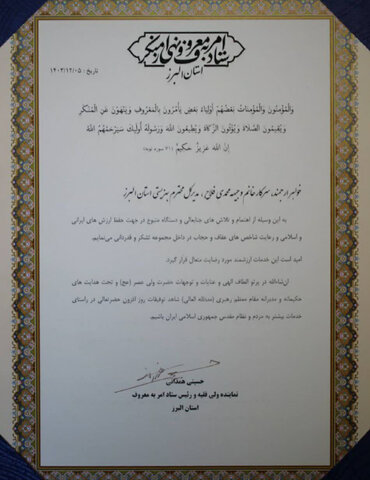 ستاد امر به معروف و نهی از منکر
استان البرز
تاریخ: ۱۴۰۳/۱۲/۰۵
وَالْمُؤْمِنُونَ وَالْمُؤْمِنَاتُ بَعْضُهُمْ أَوْلِيَاءُ بَعْضٍ يَأْمُرُونَ بِالْمَعْرُوفِ وَيَنْهَوْنَ عَنِ الْمُنْكَرِ
وَيُقِيمُونَ الصَّلَاةَ وَيُؤْتُونَ الزَّكَاةَ وَيُطِيعُونَ اللَّهَ وَرَسُولَهُ أُولَئِكَ سَيَرْحَمُهُمُ اللَّهُ
إِنَّ اللَّهَ عَزِيزٌ حَكِيمٌ (۷۱ سوره توبه)
خواهر ارجمند، سرکار خانم وحیده محمدی فلاح، مدیرکل محترم بهزیستی استان البرز
به این وسیله از اهتمام و تلاش های جنابعالی و دستگاه متبوع در جهت حفظ ارزش های ایرانی
و اسلامی و رعایت شاخص های عفاف و حجاب در داخل مجموعه تشکر و قدردانی می‌نمایم.
امید است این خدمات ارزشمند مورد رضایت متعال قرار گیرد.
ان‌شاءالله در پرتو الطاف الهی و عنایات و توجهات حضرت ولی عصر (عج) و تحت هدایت های
حکیمانه و مدبرانه مقام معظم رهبری (مدظله العالی) شاهد توفیقات روز افزون حضرتعالی در راستای
خدمات بیشتر به مردم و نظام مقدس جمهوری اسلامی ایران باشیم.
حسینی همدانی
نماینده ولی فقیه و رئیس ستاد امر به معروف
استان البرز